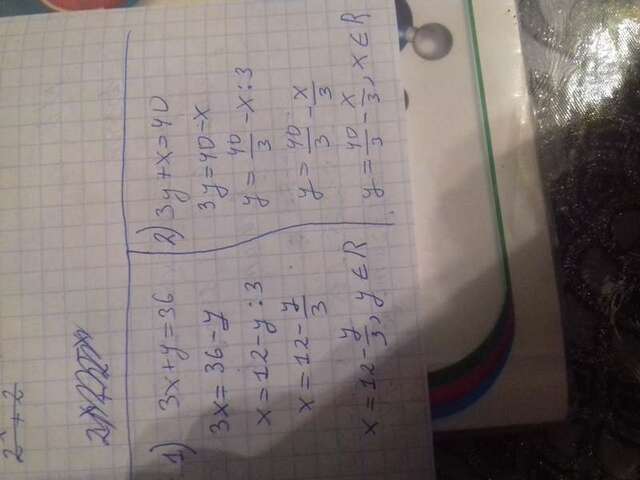 2ˣ + 2
1) 3x+y=36
3x=36-y
x=12-y:3
x=12-y/3
x=12-y/3, y∈R
2) 3y+x=40
3y=40-x
y=40/3-x:3
y=40/3-x/3
y=40/3-x/3, x∈R